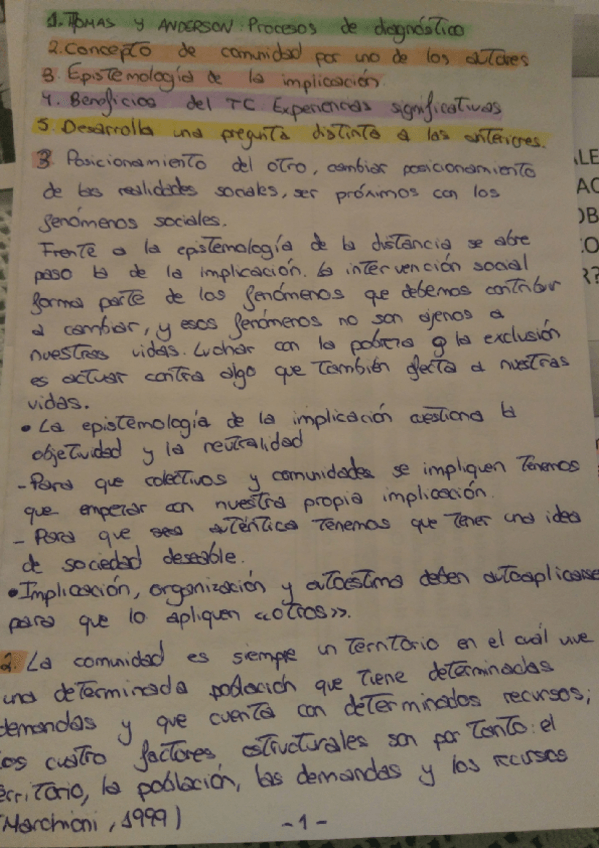 1. TOMAS y ANDERSON: Procesos de diagnóstico
2. Concepto de comunidad por uno de los autores
3. Epistemología de la implicación.
4. Beneficios del TC. Experiencias significativas
5. Desarrolla una pregunta distinta a las anteriores.
3 Posicionamiento del otro, cambiar posicionamiento
de las realidades sociales, ser próximos con los
fenómenos sociales.
Frente a la epistemología de la distancia se abre
paso la de la implicación. La intervención social
forma parte de los fenómenos que debemos contribuir
a cambiar, y esos fenómenos no son ajenos a
nuestras vidas. Luchar con la pobreza o la exclusión
es actuar contra algo que también afecta a nuestras
vidas.
• La epistemología de la implicación cuestiona la
objetividad y la neutralidad
- Para que colectivos y comunidades se impliquen tenemos
que empezar con nuestra propia implicación.
- Para que sea auténtica tenemos que tener una idea
de sociedad deseable.
• Implicación, organización y autoestima deben autoaplicarse
para que lo apliquen «otros».
2. La comunidad es siempre un territorio en el cuál vive
una determinada población que tiene determinadas
demandas y que cuenta con determinados recursos;
los cuatro factores estructurales son por tanto: el
territorio, la población, las demandas y los recursos
(Marchioni, 1999)
-1-
LE
AC
OB
CO
R?